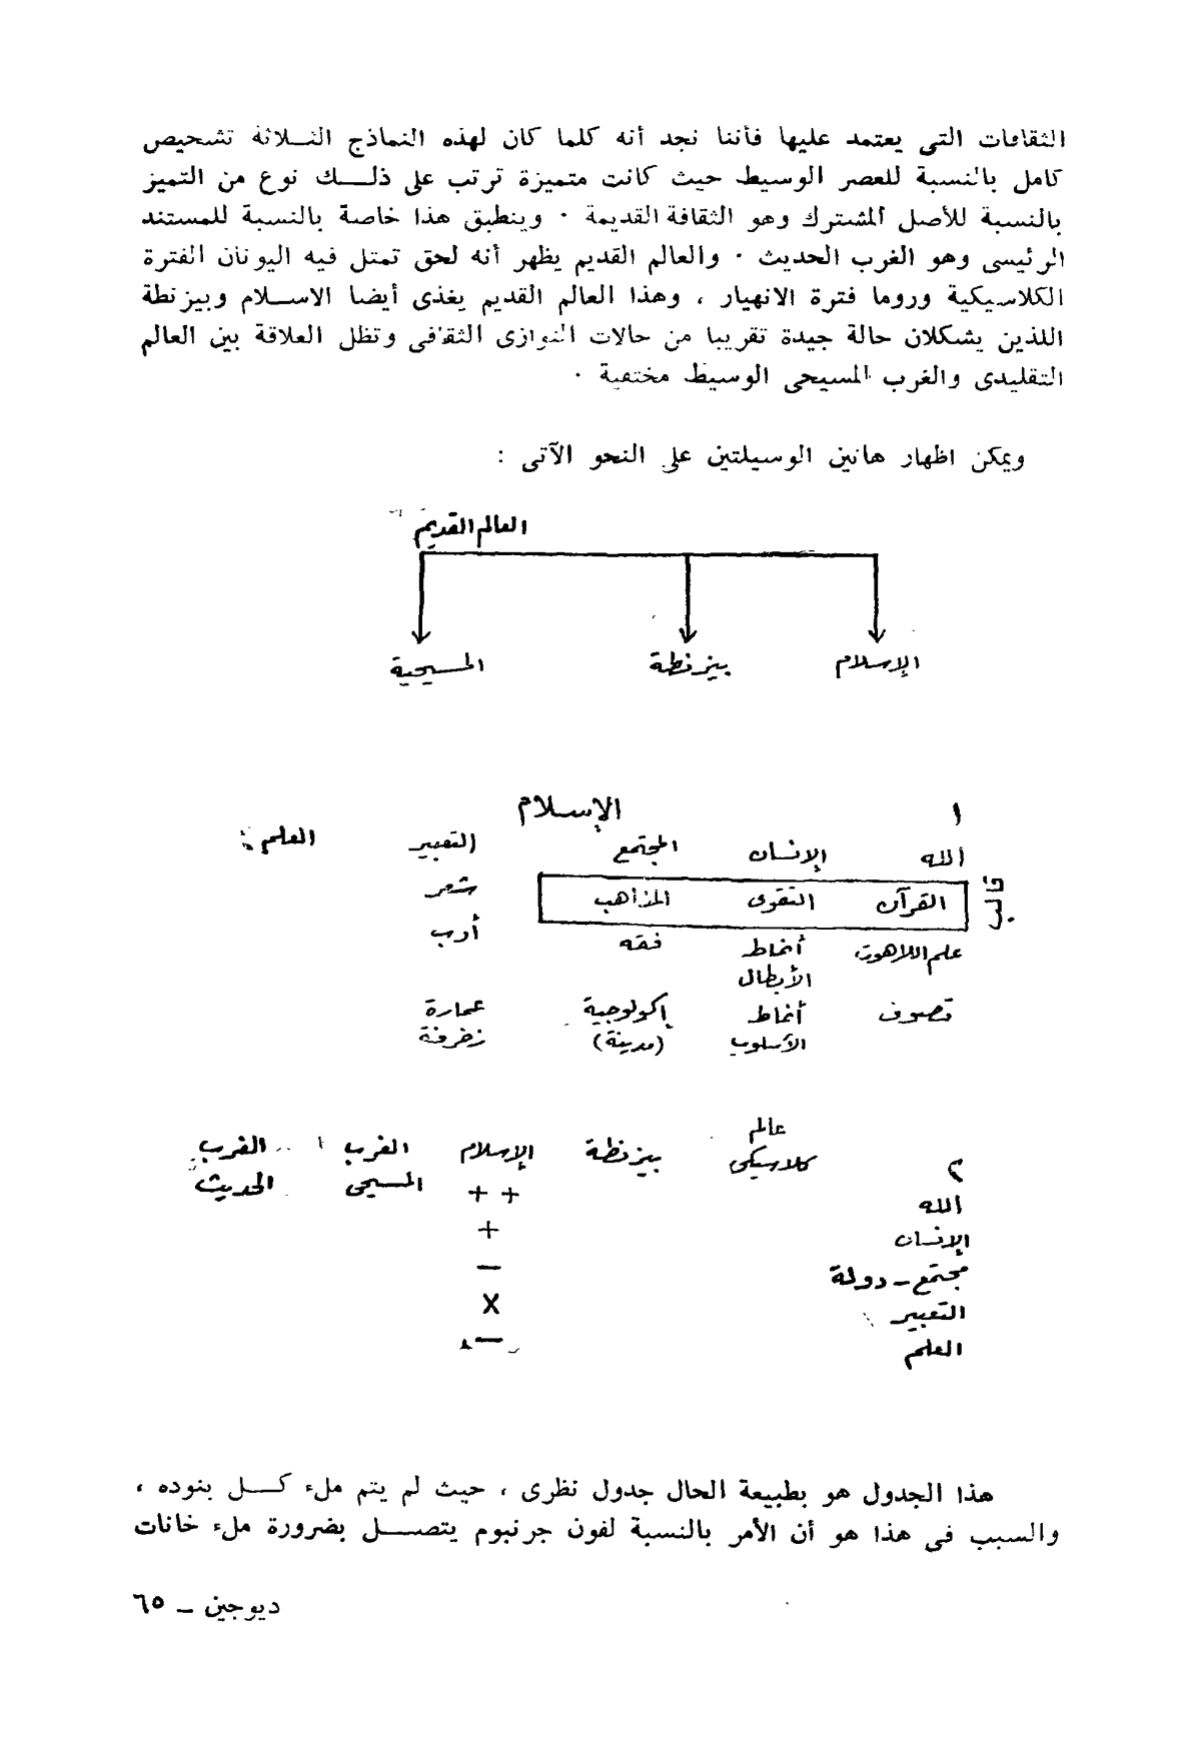 الثقافات التى يعتمد عليها فأننا نجد أنه كلما كان لهذه النماذج الثلاثة تشخيص
كامل بالنسبة للعصر الوسيط حيث كانت متميزة ترتب على ذلك نوع من التميز
بالنسبة للأصل المشترك وهو الثقافة القديمة ٠ وينطبق هذا خاصة بالنسبة للمستند
الرئيسى وهو الغرب الحديث ٠ والعالم القديم يظهر أنه لحق تمثل فيه اليونان الفترة
الكلاسيكية وروما فترة الانهيار ، وهذا العالم القديم يغذى أيضا الاسلام وبيزنطة
اللذين يشكلان حالة جيدة تقريبا من حالات التوازى الثقافى وتظل العلاقة بين العالم
التقليدى والغرب المسيحى الوسيط مختفية ٠
ويمكن اظهار هاتين الوسيلتين على النحو الآتى :
العالم القديم
الإسلام بيزنطة المسيحية
١ الإسلام
الله الإنسان المجتمع التعبير العلم
قالب
القرآن التقوى المذاهب شعر
علم اللاهوت أنماط الأبطال فقه أدب
تصوف أنماط الأسلوب إكولوجية (مدينة) عمارة زخرفة
٢ عالم كلاسيكى بيزنطة الإسلام الغرب المسيحى الغرب الحديث
الله + +
الإنسان +
مجتمع - دولة —
التعبير X
العلم —
هذا الجدول هو بطبيعة الحال جدول نظرى ، حيث لم يتم ملء كل بنوده ،
والسبب فى هذا هو أن الأمر بالنسبة لفون جرنبوم يتصل بضرورة ملء خانات
ديوجين - ٦٥